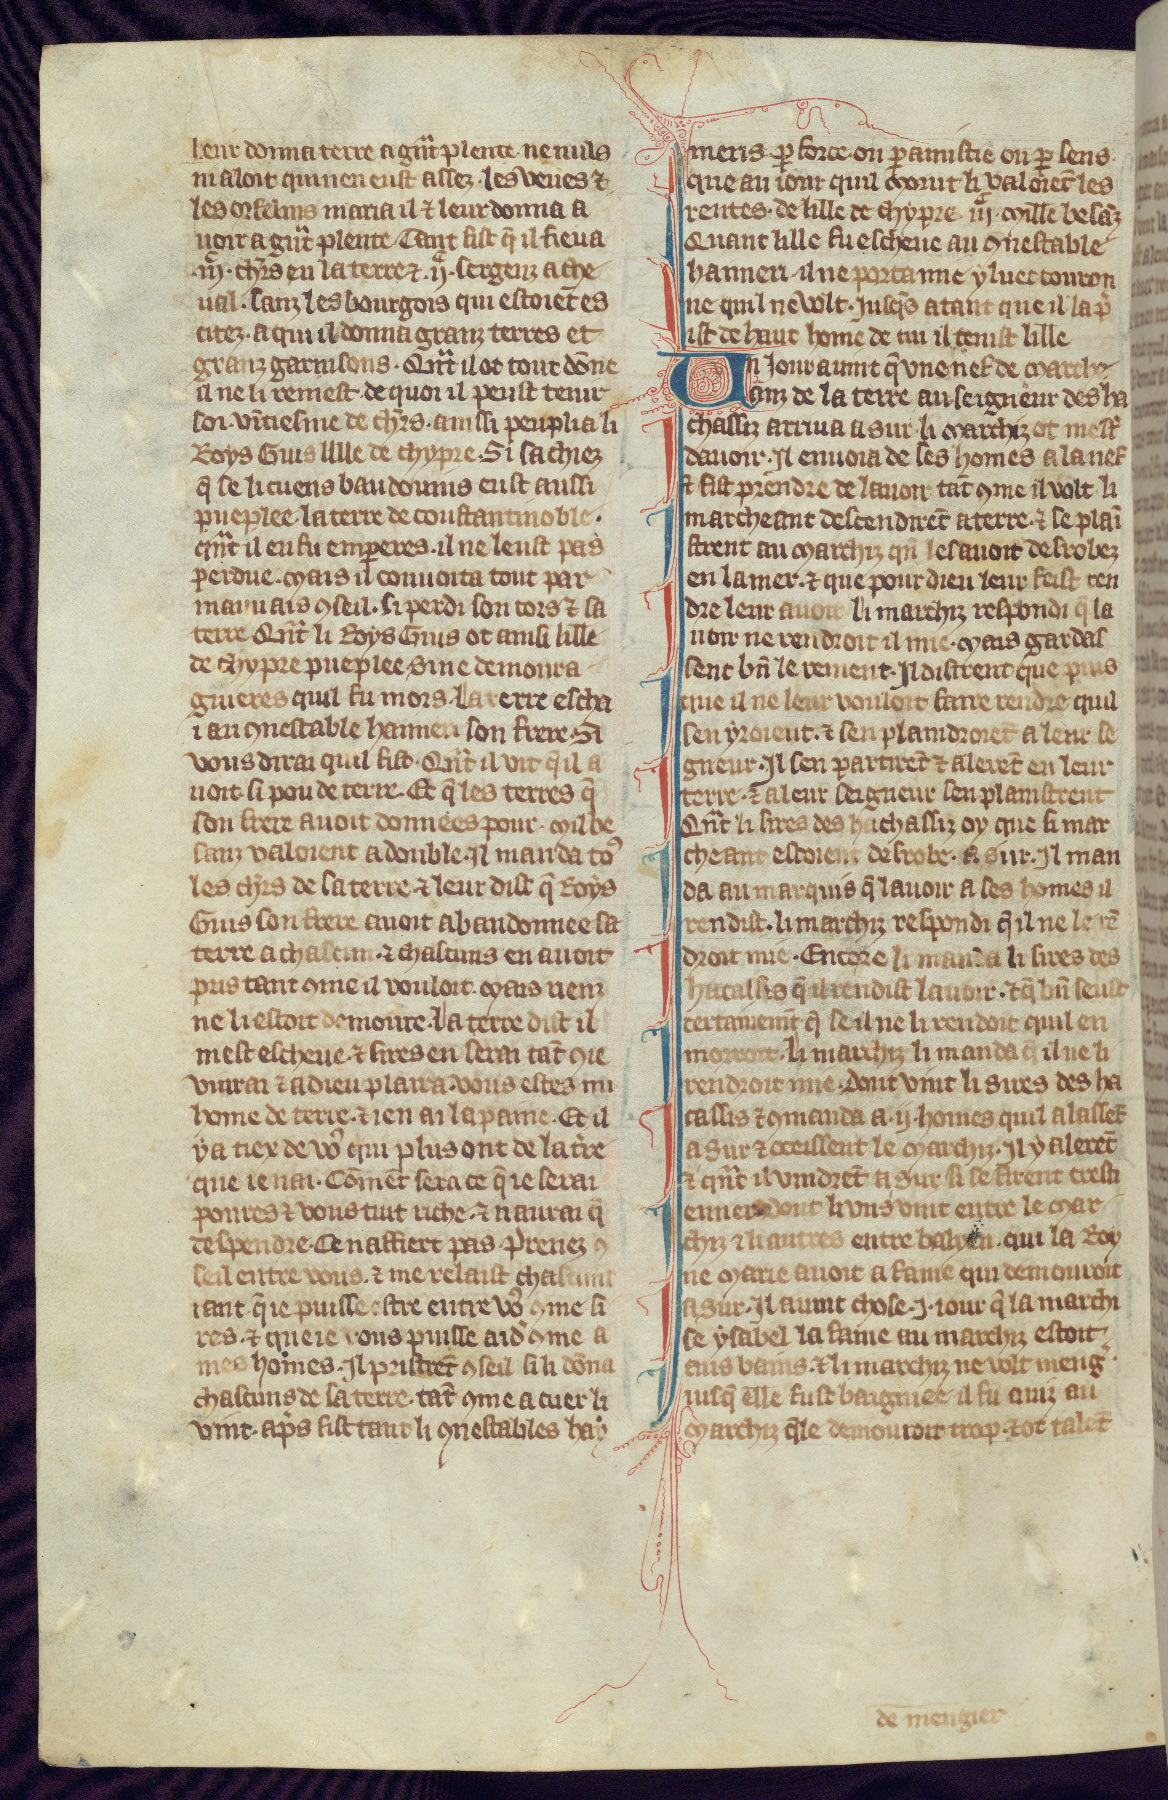 leur donna terre a gñt plente ne nuls
ni aloit qui nen eust assez. les veues ⁊
les orfelins maria il ⁊ leur donna a
uoir a gñt plente Tant fist q̃ il fieua
.iijͨ. chr̃s en la terre ⁊ .ijͨ. sergenz a che
ual. sanz les bourgois qui estoiẽt es
citez. a qui il donna granz terres et
granz garnisons. Qñt il ot tout dõne
il ne li remest de quoi il peust tenir
soi. vĩtiesme de chr̃s. ainssi peuplia li
Roys Guis lille de chypre. Si sachiez
q̃ se li cuens baudouins eust aussi
pueplee la terre de constantinoble.
qñt il en fu emꝑeres. il ne leust pas
ꝑdue. Mais il conuoita tout par
mauuais ꝯseil. si perdi son cors ⁊ sa
terre Qñt li Roys Guis ot ainsi lille
de chypre pueplee. si ne demoura
guieres quil fu mors. La terre escha
i au ꝯnestable hanneri son frere. Si
vous dirai quil fist. Qñt il vit q̃ il a
uoit si pou de terre. Et q̃ les terres q̃
son frere auoit donnees pour. Mil be
sanz valoient a double. Il manda toꝰ
les chr̃s de sa terre ⁊ leur dist q̃ Roys
Guis son frere auoit abandonnee sa
terre a chascun. ⁊ chascuns en auoit
pris tant ꝯme il vouloit. Mais rienz
ne li estoit demoure. La terre dist il
mest escheue. ⁊ sires en serai tãt ꝯie
viurai ⁊ a dieu plaira. vous estes mi
home de terre. ⁊ ien ai la paine. Et il
y a tiex de voꝰ qui plus ont de la t̃re
que ie nai. Cõment sera ce q̃ ie serai
poures ⁊ vous tuit riche. ⁊ naurai q̃
despendre. Ce naffiert pas. Prenez ꝯ
seil entre vous. ⁊ me relaist chascuns
tant. q̃ ie puisse estre entre voꝰ ꝯme si
res. ⁊ que ie vous puisse aid̾ ꝯme a
mes homes. Il pristrẽt ꝯseil si li dõna
chascuns de sa terre. tãt ꝯme a cuer li
vint. ap̃s fist tant li ꝯnestables hay
meris. ꝑ force. ou ꝑ amistie ou ꝑ sens.
que au iour quil Morut li valoiẽt les
rentes. de lille de chypre .iijͨ. Mille besãz
Quant lille fu escheue au ꝯnestable
hanneri. il ne porta mie yluec couron
ne quil ne volt. Jusq̃s atant que il la p̃
ist de haut home de cui il tenist lille
Un Jour auint q̃ vne nef de March
anz de la terre au seigneur des ha
chassiz arriua a sur. li Marchiz ot mest̾
dauoir. Il enuoia de ses homes a la nef
⁊ fist prendre de lauoir tãt ꝯme il volt. li
marcheant descendirẽt a terre. ⁊ se plaĩ
strent au Marchiz qñ les auoit desrobez
en la mer. ⁊ que pour dieu leur feist ren
dre leur auoir. li marchiz respondi q̃ la
uoir ne rendroit il mie. Mais gardas
sent bñ le rement. Il distrent que puis
que il ne leur vouloit faire rendre quil
sen yroient. ⁊ sen plaindroiẽt a leur se
gneur. Il sen partirẽt ⁊ alerẽt en leur
terre. ⁊ a leur seigneur sen plainstrent
Qñt li sires des hachassiz oy que si mar
cheant estoient desrobe. A sur. Il man
da au marquis q̃ lauoir a ses homes il
rendist. li marchiz respondi q̃ il ne le rẽ
droit mie. Encore li manda li sires des
hacassis q̃ il rendist lauoir. ⁊ q̃ bñ seust
certainemt̃ q̃ se il ne li rendoit quil en
morroit. Li marchiz li manda q̃ il ne li
rendroit mie. Dont vint li sires des ha
cassis ⁊ ꝯmanda a .ij. homes quil alassẽt
a sur ⁊ oceissent le Marchiz. Il y alerẽt
⁊ qñt il vindrẽt a sur si se firent cresti
enner. Dont li vns vint entre le Mar
chiz ⁊ li autres entre balyen. qui la Roy
ne Marie auoit a fame qui demouroit
a sur. Il auint chose .I. iour q̃ la marchi
se ysabel la fame au marchiz estoit
aus bains. ⁊ li marchiz ne volt meng̾.
iusq̃ elle fust baigniee. il fu auiz au
Marchiz q̃le demouroit trop. ⁊ ot talẽt
de mengier